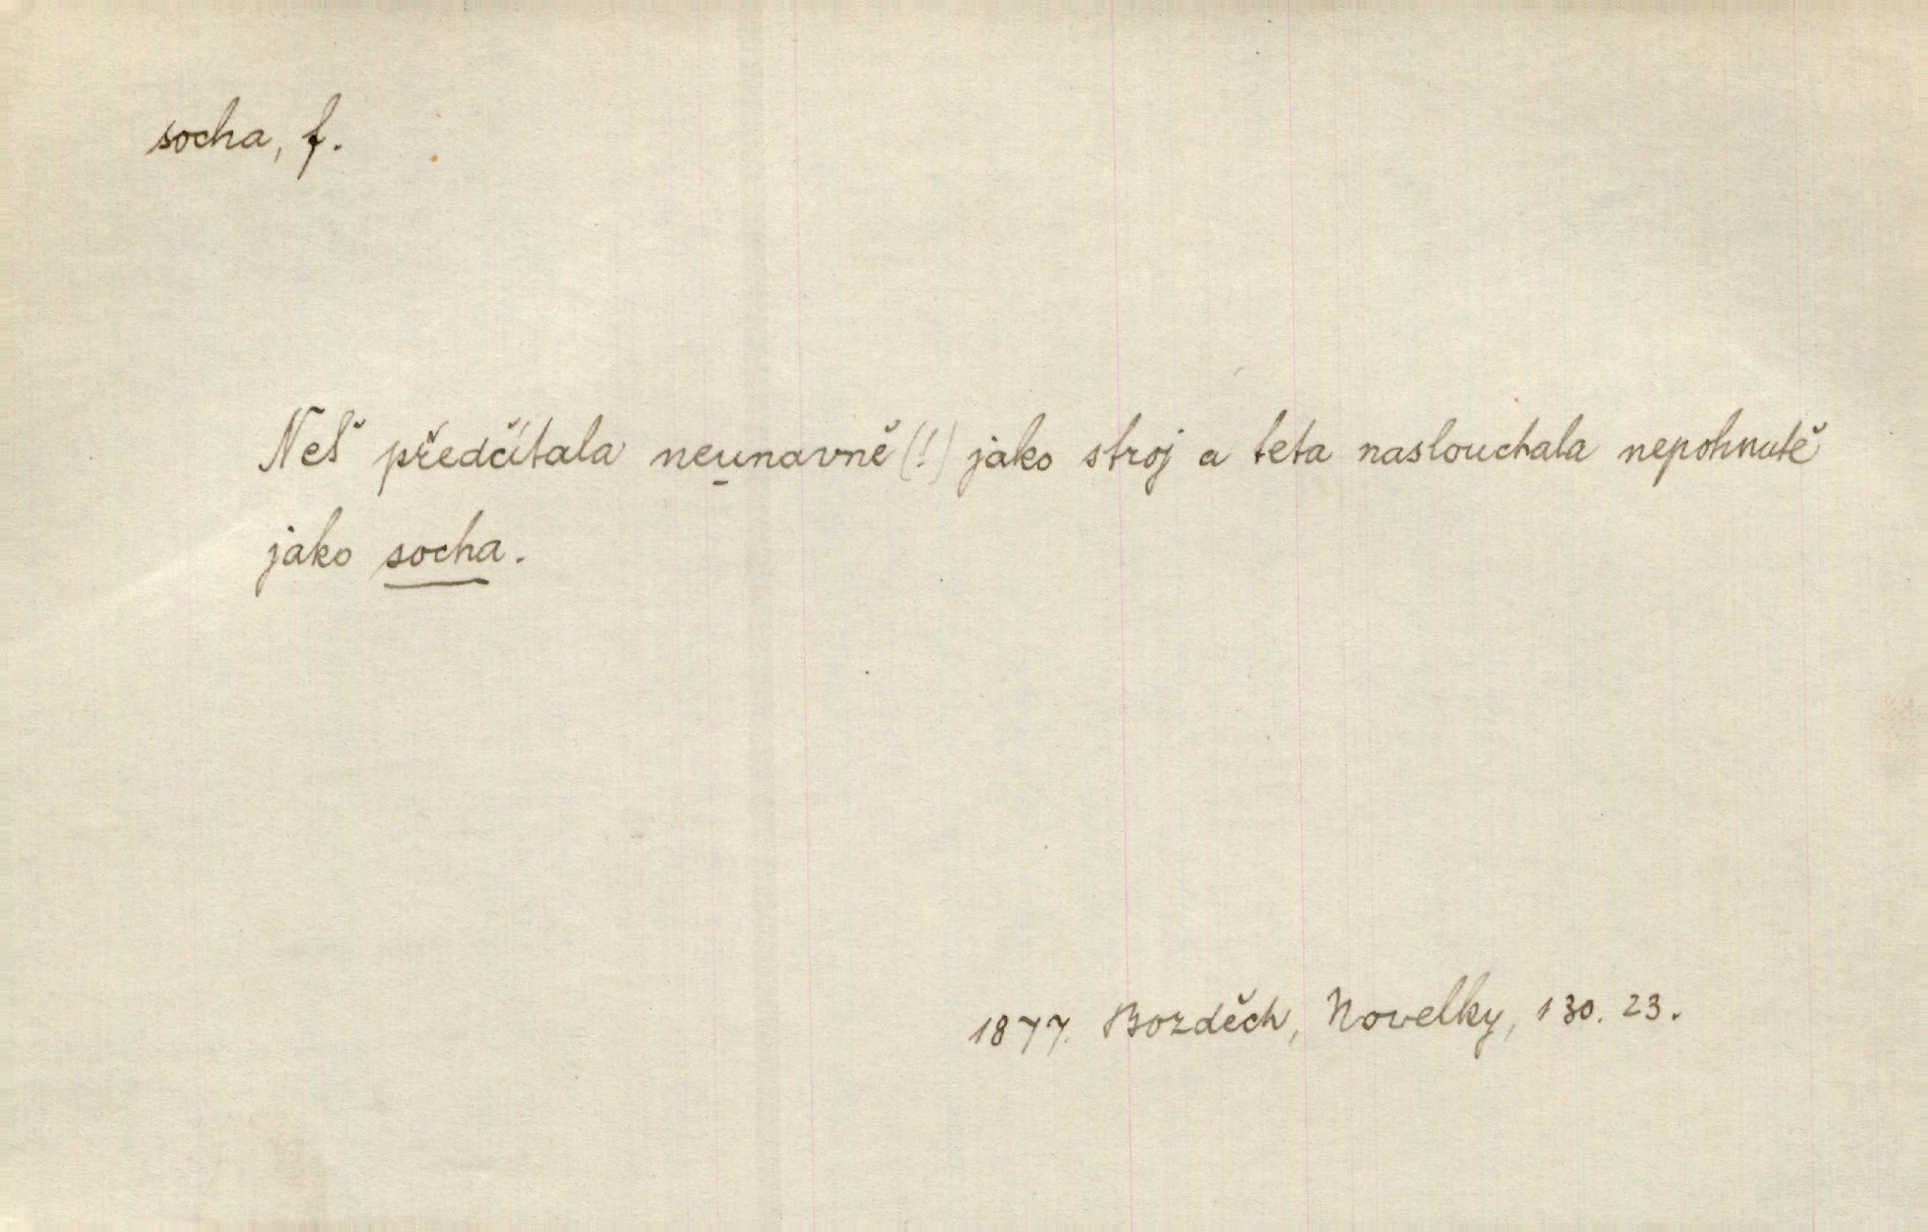 socha, f.
Neš předčítala neunavně (!) jako stroj a teta naslouchala nepohnutě
jako socha.
1877. Bozděch, Novelky, 130. 23.